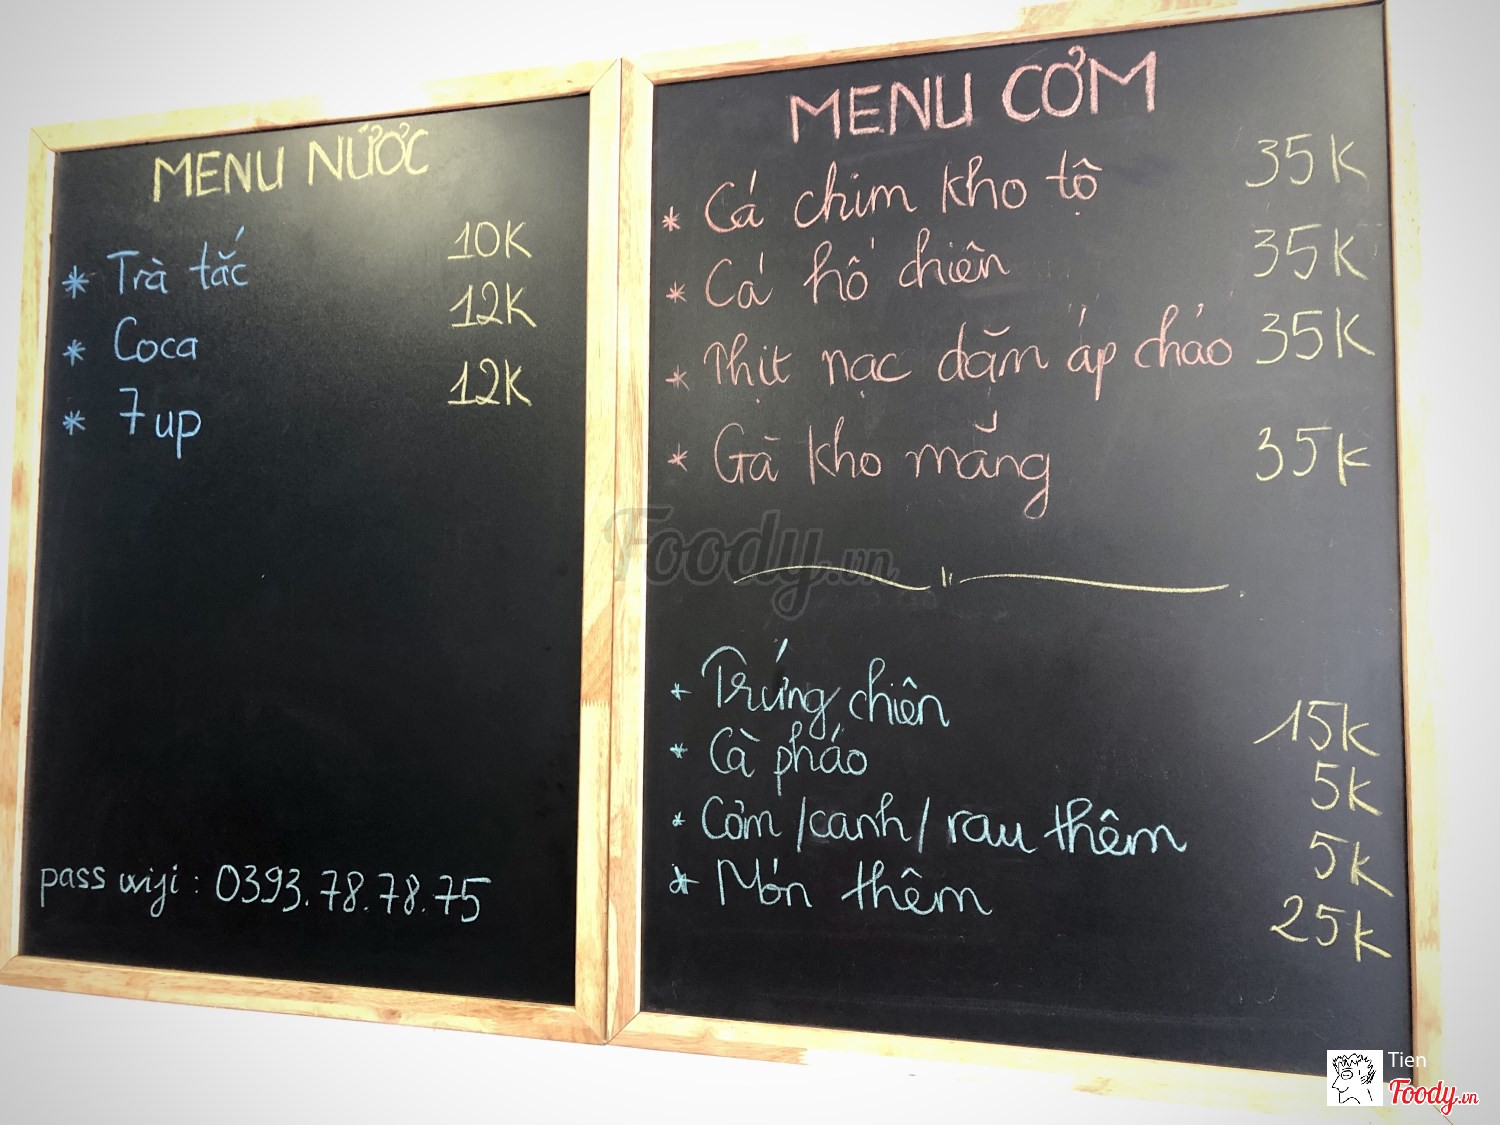 MENU NƯỚC
* Trà tắc 10K
* Coca 12K
* 7up 12K
pass wifi : 0393.78.78.75
MENU CƠM
* Cá chim kho tộ 35K
* Cá hố chiên 35K
* Thịt nạc dăm áp chảo 35K
* Gà kho măng 35K
* Trứng chiên 15K
* Cà pháo 5K
* Cơm/canh/rau thêm 5K
* Món thêm 25K
Foody.vn
Tien
Foody.vn